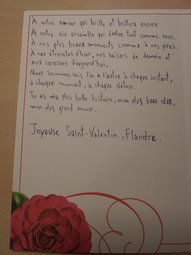 A notre amour qui brille et brillera encore.
A notre vie ensemble qui  toute comme nous.
A nos plus beaux moments comme à nos pires.
A nos étreintes d'hier, nos baisers de demain et
nos caresses d'aujourd'hui.
Nous sommes  l'un à l'autre à chaque instant,
à chaque moment, à chaque détour.
Tu es ma plus belle histoire, mon plus beau rêve,
mon plus grand amour.
Joyeuse Saint-Valentin, Flandre.